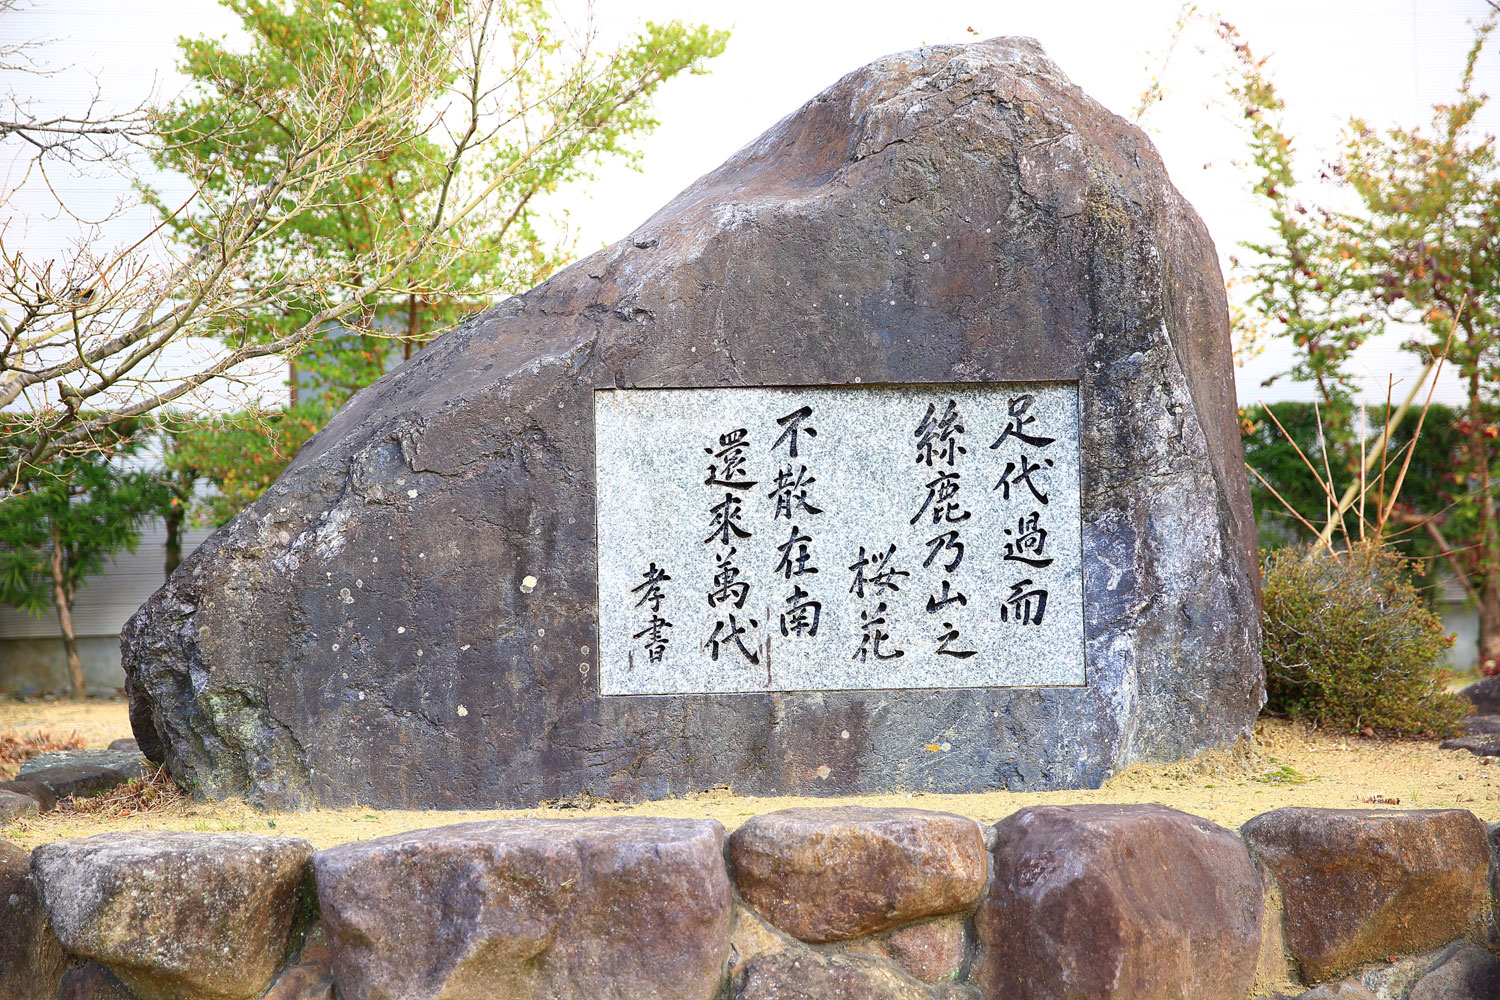 足代過而
絲鹿乃山之
桜花
不散在南
還來萬代
孝書